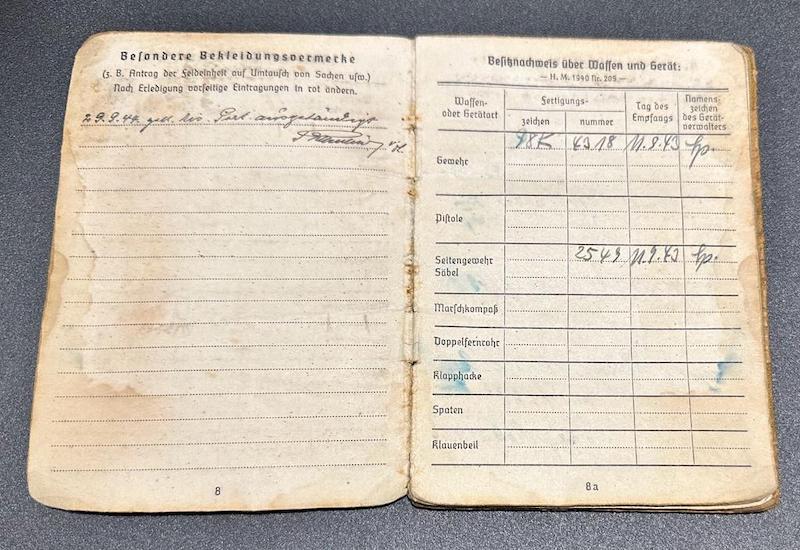 Besondere Bekleidungsvermerke
(z. B. Antrag der Feldeinheit auf Umtausch von Sachen usw.)
Nach Erledigung vorseitige Eintragungen in rot ändern.
ausgehändigt
8
Besitznachweis über Waffen und Gerät:
— H. M. 1940 Nr. 209 —
Waffen- oder Gerätart
Fertigungs-
zeichen
nummer
Tag des Empfangs
Namens- zeichen des Gerät- verwalters
Gewehr 98K 4318 11.9.43
Pistole
Seitengewehr 2549 11.9.43
Säbel
Marschkompaß
Doppelfernrohr
Klapphacke
Spaten
Klauenbeil
8a